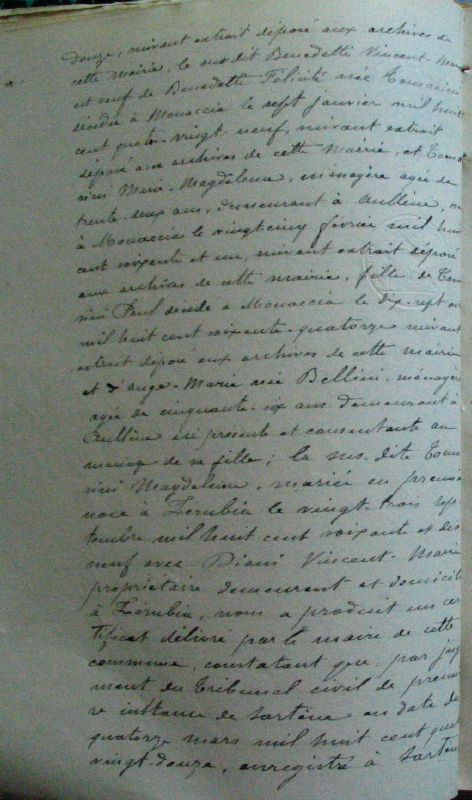 douze, suivant extrait déposé aux archives de
cette mairie, le sus dit Benedetti Vincent-Marie
est veuf de Benedetti Félicité née Tomasini
décédée à Monaccia le sept janvier mil huit
cent quatre-vingt-neuf, suivant extrait
déposé aux archives de cette Mairie, et Toma
sini Marie-Magdeleine, ménagère agée de
trente deux ans, demeurant à Aullène, née
à Monaccia le vingt cinq février mil huit
cent soixante et un, suivant extrait déposé
aux archives de cette mairie, fille de Toma
sini Paul décédé à Monaccia le dix-sept
mil huit cent soixante-quatorze suivant
extrait déposé aux archives de cette mairie
et d'Ange-Marie née Bellini, ménagère
agée de cinquante-six ans demeurant à
Aullène ici présente et consentante au
mariage de sa fille; la sus-dite Toma
sini Magdeleine, mariée en premiè
noce à Zérubia le vingt-trois sep
tembre mil huit cent soixante et dix
neuf avec Diani Vincent-Marie
propriétaire demeurant et domicilié
à Zérubia, nous a produit un cer
tificat délivré par le maire de cette
commune, constatant que, par juge
ment du Tribunal civil de premiè
re instance de Sartène en date du
quatorze mars mil huit cent quatre
vingt-douze, enregistré à Sartène